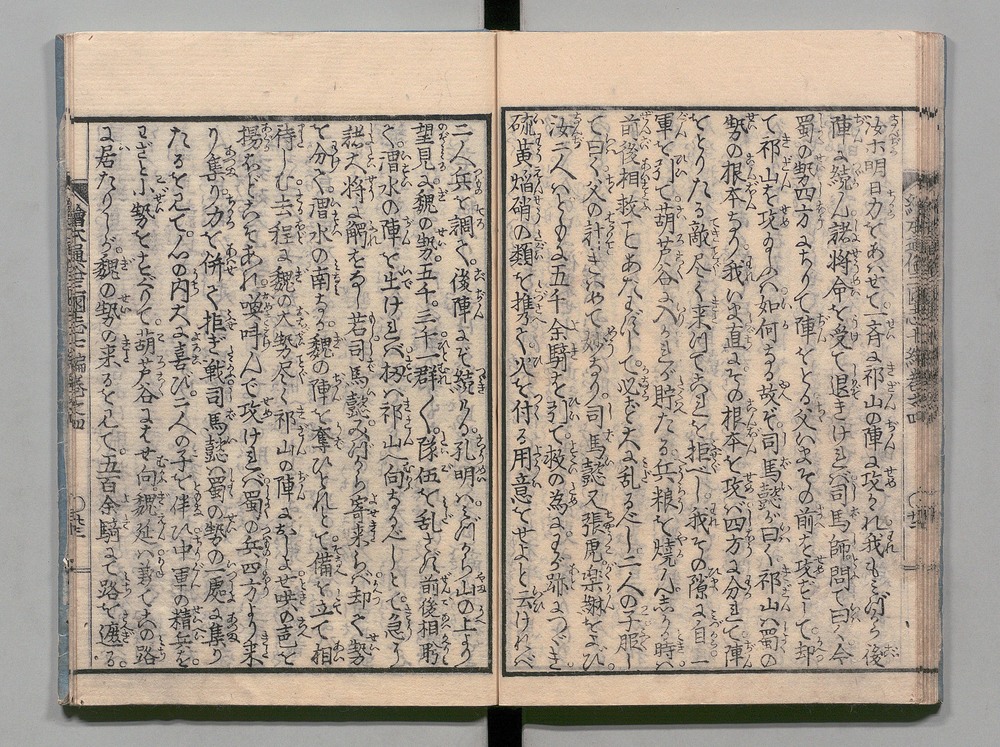 汝等明日力をあはせて一斉に祁山の陣を攻かれ我もミづから後
陣に続ん諸将命を受て退きけれバ司馬師問て曰く今
蜀の勢四方にわかちて陣をとる父いまその前を攻ずして却
て祁山を攻玉ふハ如何なる故ぞ司馬懿が曰く祁山ハ蜀の
勢の根本なり我いま直にその根本を攻バ四方に分れて陣
をとりたる敵尽く来つてこれを拒べし我その隙に自一
軍を引て胡芦谷に入かれが貯たる兵粮を焼ん志かる時ハ
前後相救ことあたハずして必ず大に乱るべし二人の子服し
て曰く父の計きハめて妙なり司馬懿又張虎楽綝をよび
汝二人ハともに五千余騎を引て救の為にわが跡につゞき
硫黄焔硝の類を携て火を付る用意をせよと云けれバ
二人兵を調て後陣にぞ続ける孔明ハミづから山の上より
望見に魏の勢五千三千一群て隊伍を乱さず前後相顧
て渭水の陣を生けれバ扨ハ祁山へ向ふなるべしとて急に
諸大将に觧をなし若司馬懿ミづから寄来らバ却て勢
を分て渭水の南なる魏の陣を奪ひとれと備を立て相
待しむ去程に魏の大勢尽く祁山の陣におしよせ哄の声を
揚ちどろをあれ喊叫んで攻けれバ蜀の兵四方より来
り集り力を併て拒ぎ戦司馬懿ハ蜀の勢の一處に集り
たるを見て心の内大に喜び二人の子を伴ひ中軍の精兵を
わざと小勢をすぐりて胡芦谷にはせ向魏延ハ豫てこの路
に居たりしが魏の勢の来るを見て五百余騎にて路を遮る
繪本通俗三國志七編巻之四